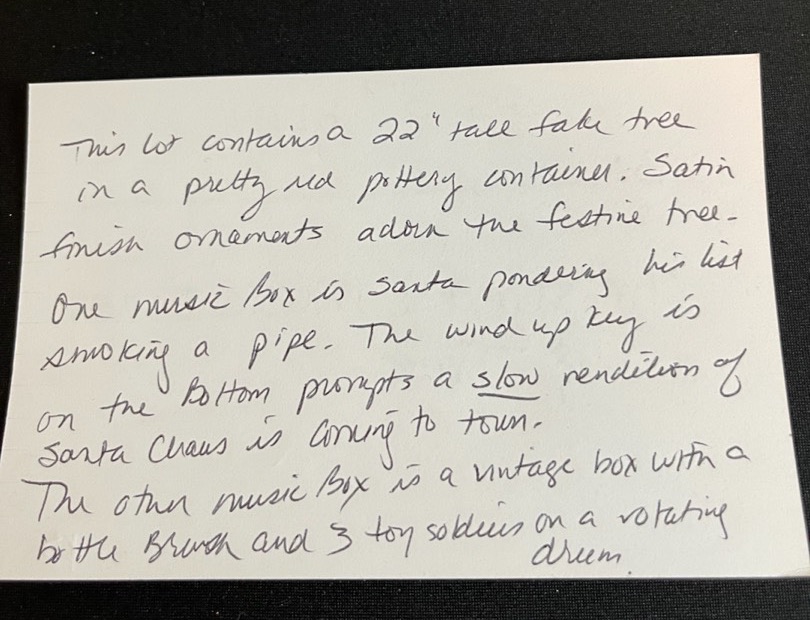 This lot contains a 22" tall fake tree
in a pretty red pottery container. Satin
finish ornaments adorn the festive tree.
One music Box is Santa pondering his list
smoking a pipe. The wind up key is
on the Bottom prompts a slow rendition of
Santa Claus is Coming to town.
The other music Box is a vintage box with a
bottle Brush and 3 toy soldiers on a rotating
drum.